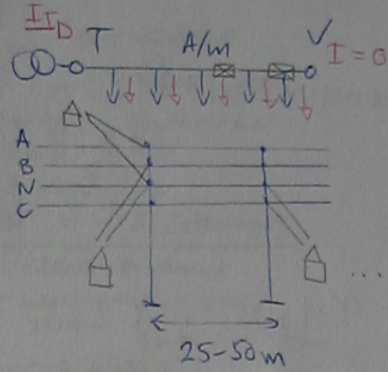 I I_D T A/m V I = 0
A
B
N
C
...
25-50m